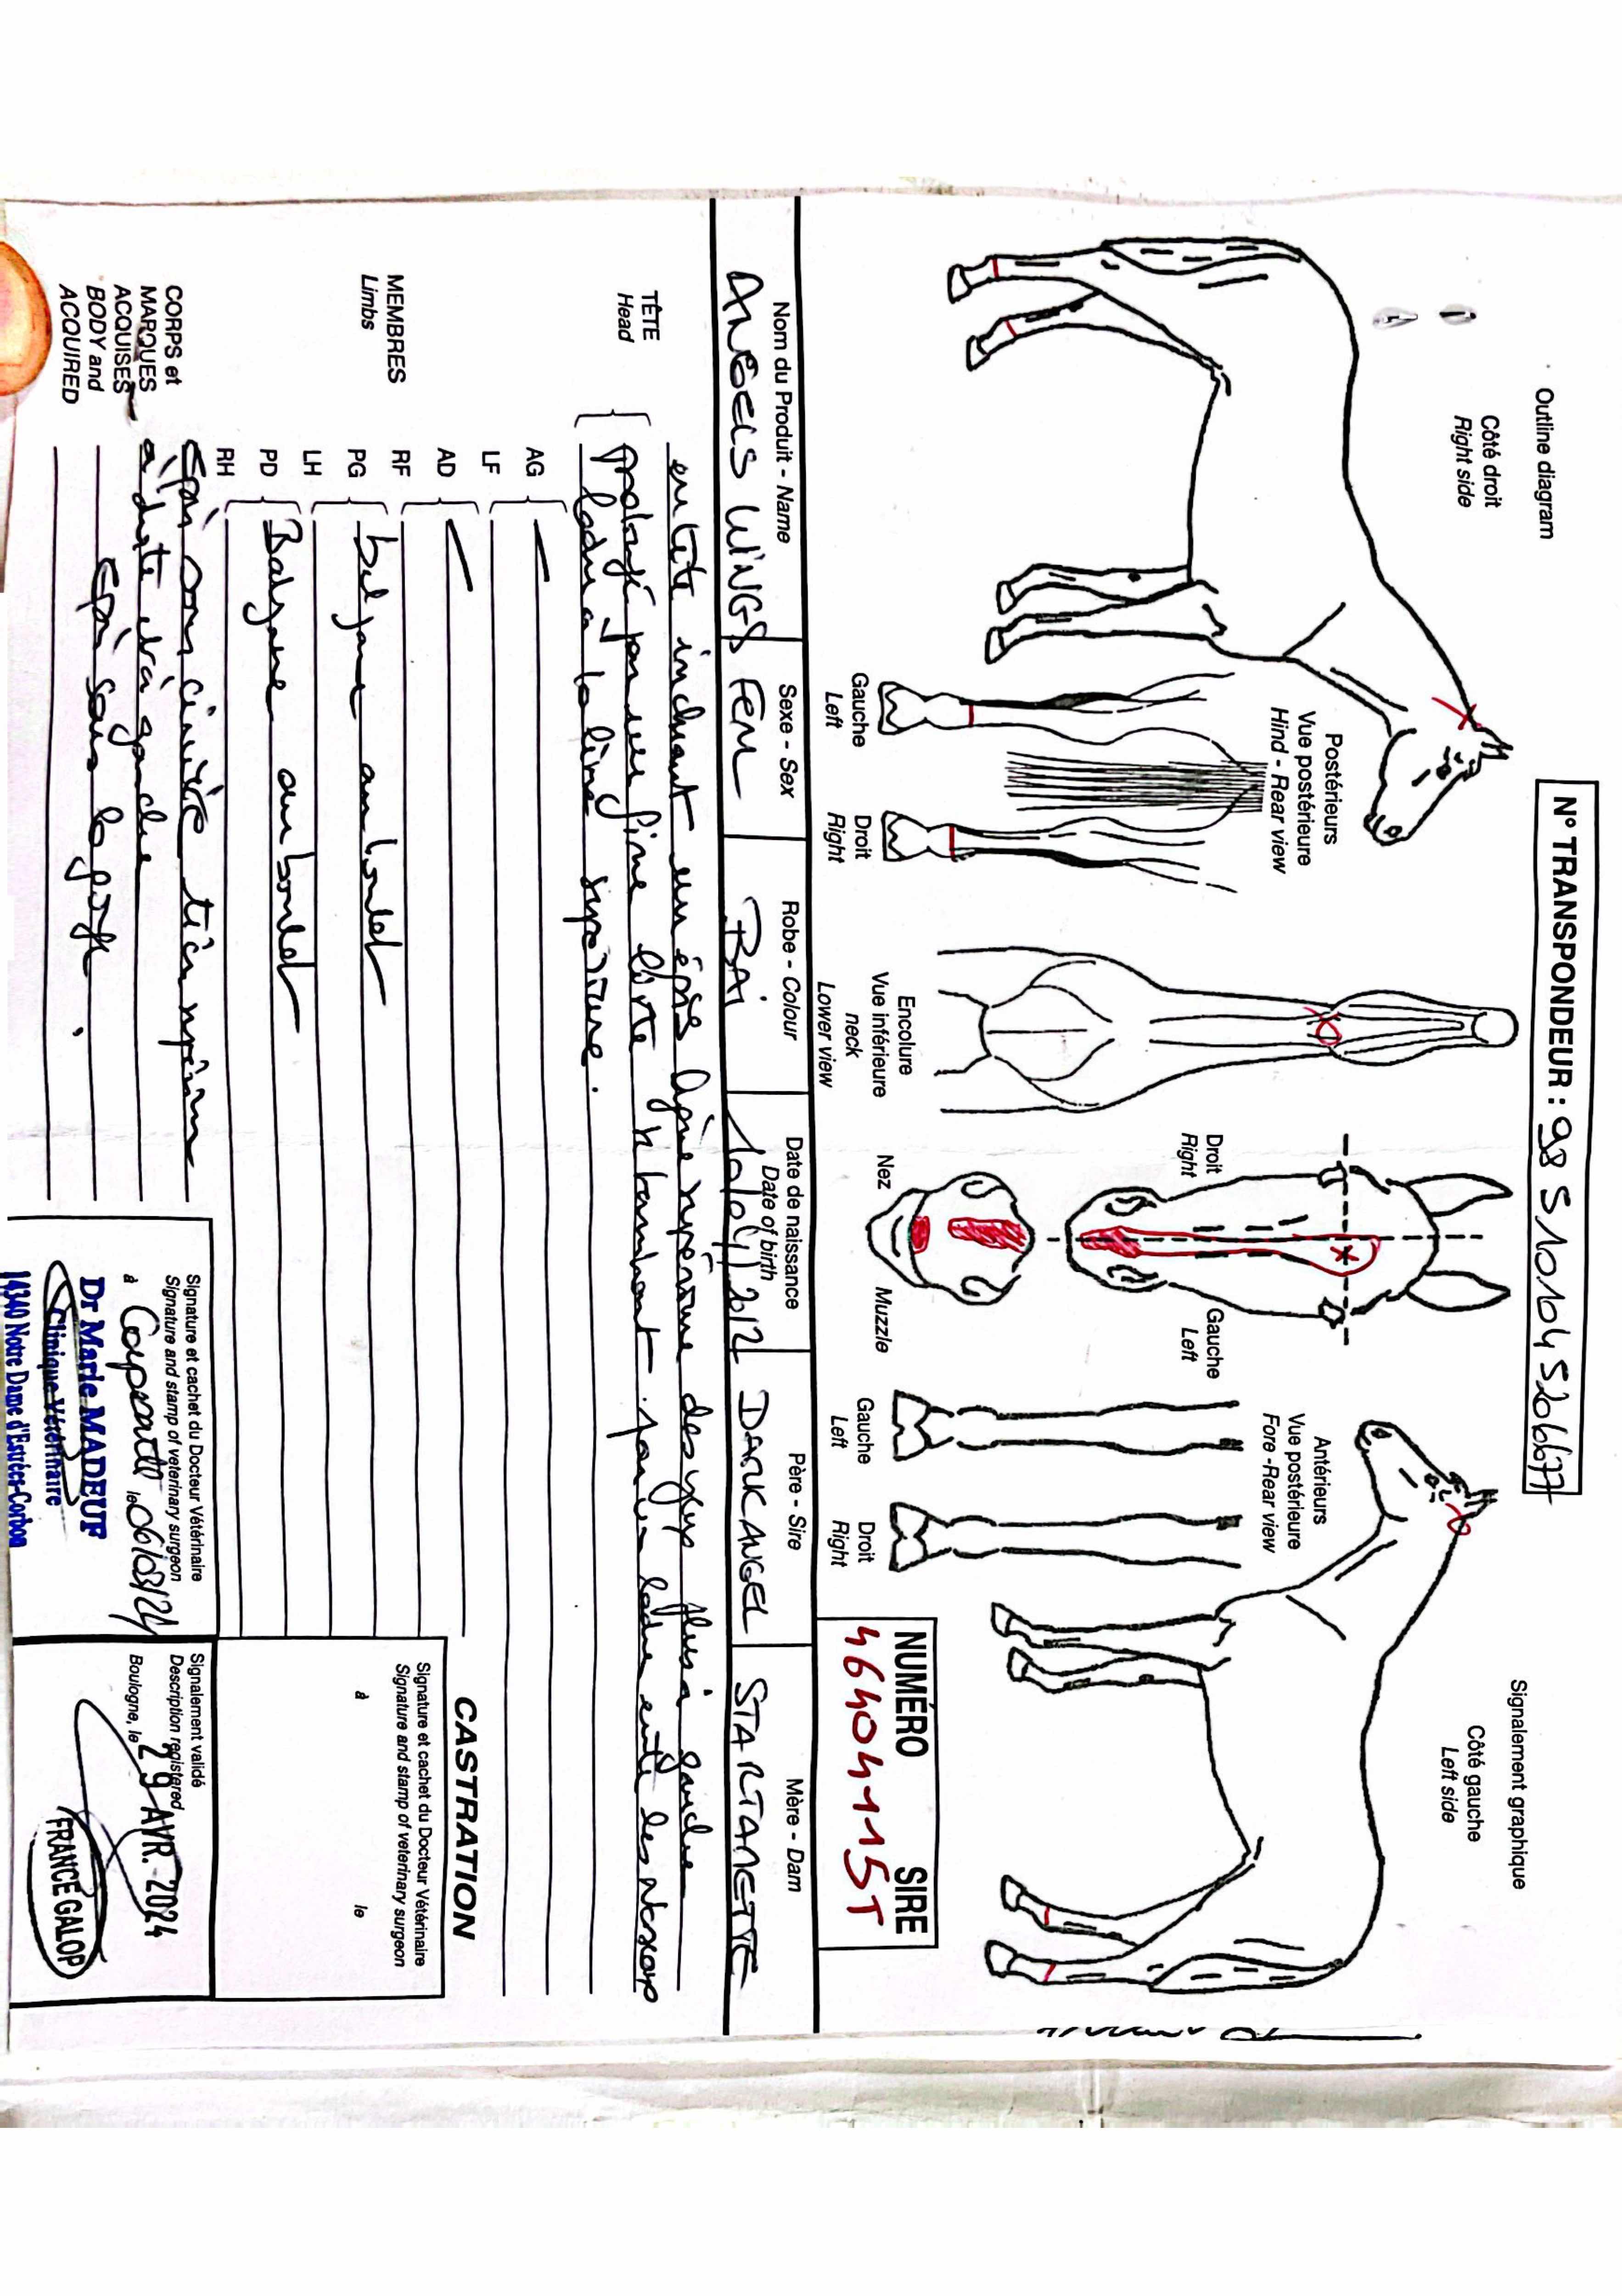 N° TRANSPONDEUR :
Outline diagram
Signalement graphique
Côté droit
Right side
Côté gauche
Left side
Postérieurs
Vue postérieure
Hind - Rear view
Gauche
Left
Droit
Right
Encolure
Vue inférieure
neck
Lower view
Droit
Right
Gauche
Left
Nez
Muzzle
Antérieurs
Vue postérieure
Fore - Rear view
Gauche
Left
Droit
Right
NUMÉRO SIRE
Nom du Produit - Name
ANGELS WINGS
Sexe - Sex
FEM
Robe - Colour
BAI
Date de naissance
Date of birth
Père - Sire
DARK ANGEL
Mère - Dam
STARTANETTE
TÊTE
Head
en tête incluant un épi ligne supérieure des yeux plus à gauche
prolongé par une fine liste
ladre à la lèvre supérieure.
MEMBRES
Limbs
AG
LF
AD
RF
PG
LH
balzane au boulet
PD
RH
Balzane au boulet
CORPS et
MARQUES
ACQUISES
BODY and
ACQUIRED
à droite et à gauche
Epi sous la gorge
CASTRATION
Signature et cachet du Docteur Vétérinaire
Signature and stamp of veterinary surgeon
à le
Signature et cachet du Docteur Vétérinaire
Signature and stamp of veterinary surgeon
à le
Dr Marie MADEUF
Clinique Vétérinaire
14340 Notre Dame d'Estrées-Corbon
Signalement validé
Description registered
Boulogne, le 29 AVR. 2024
FRANCE GALOP